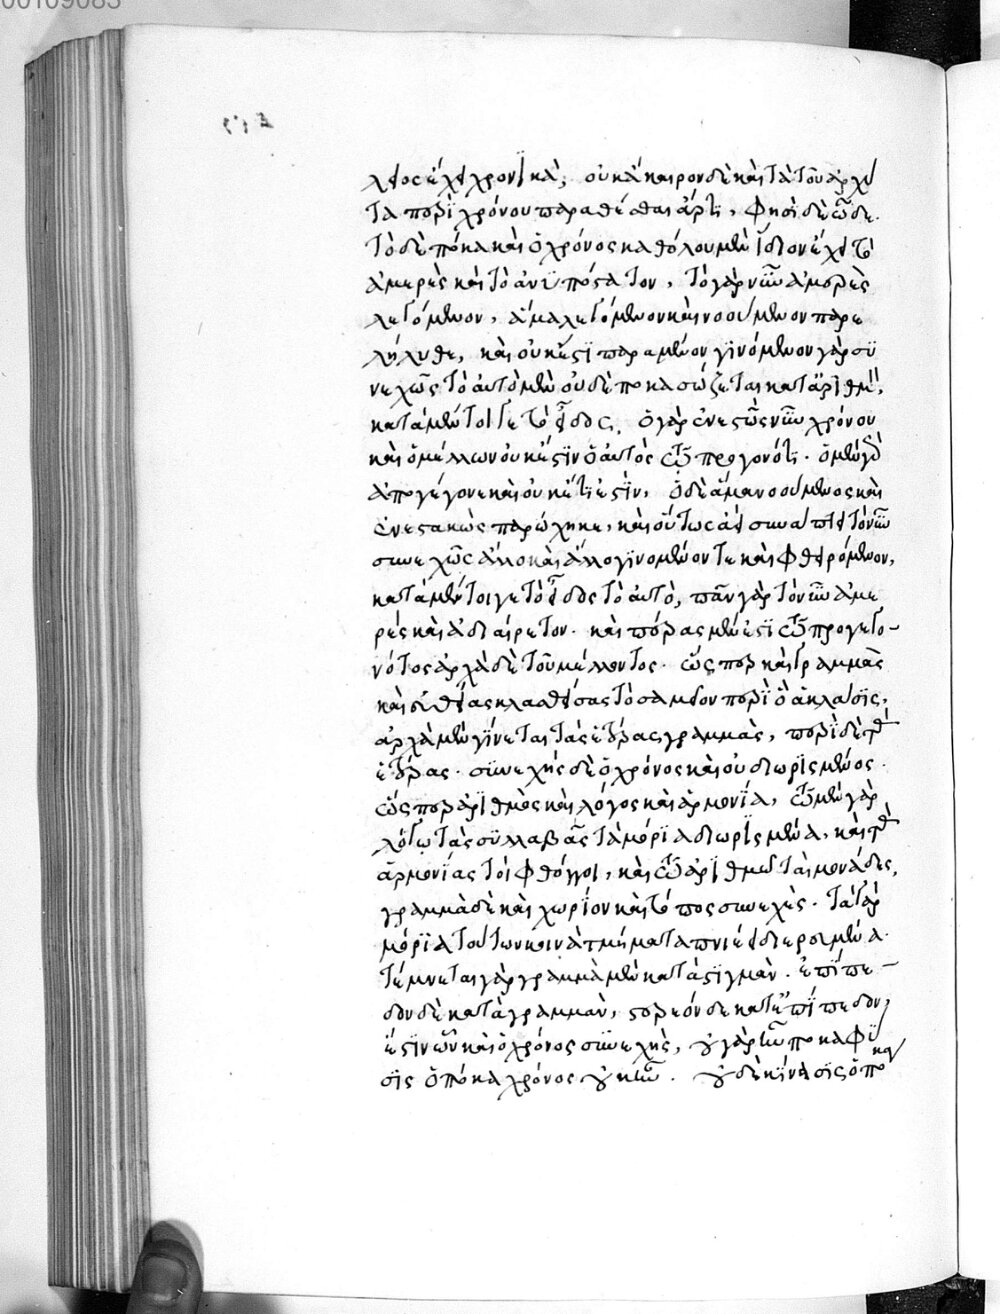 00109083
λειος ἔχει χρονικά; οὐκ ἄκαιρον δὲ καὶ τὰ τοῦ ἀρχύ
τα περὶ χρόνου παραθέσθαι ἄρτι, φησὶ δὲ ὧδε.
τὸ δὲ πόκα καὶ ὁ χρόνος καθόλου μὲν ἴδιον ἔχει τὸ
ἀμερὲς καὶ τὸ ἀνυπόστατον, τὸ γὰρ νῦν ἀμερὲς
λεγόμενον, ἅμα λεγόμενον καὶ νοούμενον παρε
λήλυθε, καὶ οὐκ ἔστι παραμένον γινόμενον γὰρ συ
νεχῶς τὸ αὐτὸ μὲν οὐδέποκα σώζεται κατ' ἀριθμὸν,
κατὰ μέντοιγε τὸ εἶδος. ὁ γὰρ ἐνεστὼς νῦν χρόνου
καὶ ὁ μέλλων οὐκ ἔστιν ὁ αὐτὸς τῷ προγονότι. ὁ μὲν γὰρ
ἀπογέγονε καὶ οὐκέτι ἐστὶν, ὁ δὲ ἅμα νοούμενος καὶ
ἐνεστακὼς παρῴχηκε, καὶ οὕτως ἀεὶ συνάπτει τὸ νῦν
συνεχῶς ἄλλο καὶ ἄλλο γινομένον τε καὶ φθειρόμενον,
κατὰ μέντοιγε τὸ εἶδος τὸ αὐτὸ, πᾶν γὰρ τὸ νῦν ἀμε
ρὲς καὶ ἀδιαίρετον. καὶ πέρας μὲν ἐστὶ τῷ προγεγο-
νότος ἀρχὰ δὲ τοῦ μέλλοντος. ὥσπερ καὶ γραμμᾶς
καὶ εὐθείας κλασθείσας τὸ σαμεῖον περὶ ὃ ἁ κλάσις,
ἀρχὰ μὲν γίνεται τᾶς ἑτέρας γραμμᾶς, πέρας δὲ τᾶς
ἑτέρας. συνεχὴς δὲ ὁ χρόνος καὶ οὐ διωρισμένος.
ὥσπερ ἀριθμὸς καὶ λόγος καὶ ἁρμονία, τῷ μὲν γὰρ
λόγῳ ταὶ συλλαβαὶ τὰ μόρια διωρισμένα, καὶ τᾶς
ἁρμονίας τοὶ φθόγγοι, καὶ τῷ ἀριθμῶ ταὶ μονάδες,
γραμμὰ δὲ καὶ χωρίον καὶ τόπος συνεχὲς. τὰ γὰρ
μόρια τούτων κοινὰ τμήματα ποιεῖ διερούμενα.
τέμνεται γὰρ γραμμὰ μὲν κατὰ στιγμάν. ἐπίπε-
δον δὲ κατὰ γραμμάν, στερεόν δὲ κατ' ἐπίπεδον,
ἔστιν ὦν καὶ ὁ χρόνος συνεχής, οὐ γὰρ ἦν ποκα φύ
σις ὁπόκα χρόνος οὐκ ἦν. οὐδὲ κίνασις ὁπό
κα